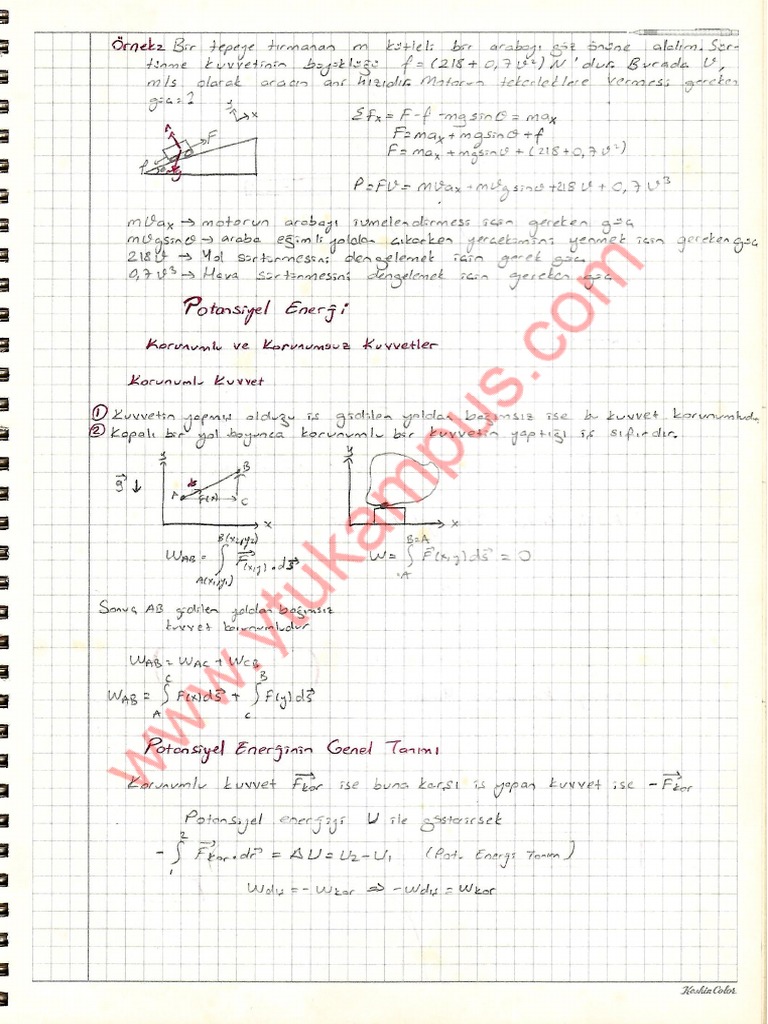 Örnek: Bir tepeye tırmanan m kütleli bir arabayı göz önüne alalım. Sür-
tünme kuvvetinin büyüklüğü f = (218 + 0,7v²) N'dur. Burada v,
m/s olarak aracın ani hızıdır. Motorun tekerleklere vermesi gereken
güç = ?
y
x
Σfx = F - f - mg sinθ = max
F = max + mg sinθ + f
F = max + mg sinθ + (218 + 0,7v²)
F
f
P = Fv = mvax + mvg sinθ + 218v + 0,7v³
mvax → motorun arabayı ivmelendirmesi için gereken güç
mvg sinθ → araba eğimli yoldan çıkarken yerçekimini yenmek için gereken güç
218v → Yol sürtünmesini dengelemek için gerek güç
0,7v³ → Hava sürtünmesini dengelemek için gereken güç
Potansiyel Enerji
Korunumlu ve Korunumsuz Kuvvetler
Korunumlu Kuvvet
① Kuvvetin yapmış olduğu iş gidilen yoldan bağımsız ise bu kuvvet korunumludur.
② Kapalı bir yol boyunca korunumlu bir kuvvetin yaptığı iş sıfırdır.
g⃗ ↓ y A ds B F(x) C x
y x
W_AB = ∫_{A(x₁,y₁)}^{B(x₂,y₂)} F⃗(x,y) . ds⃗
W = ∫_A^{B=A} F⃗(x,y) ds⃗ = 0
Sonuç AB gidilen yoldan bağımsız
kuvvet korunumludur
W_AB = W_AC + W_CB
W_AB = ∫_A^C F(x) ds⃗ + ∫_C^B F(y) ds⃗
Potansiyel Enerjinin Genel Tanımı
Korunumlu kuvvet F⃗kor ise buna karşı iş yapan kuvvet ise -F⃗kor
Potansiyel enerjiyi U ile gösterirsek
- ∫_1^2 F⃗kor . dr⃗ = ΔU = U₂ - U₁ (Pot. Enerji Tanım)
Wdış = - Wkor ⇒ - Wdış = Wkor
www.ytukampus.com
Keskin Color